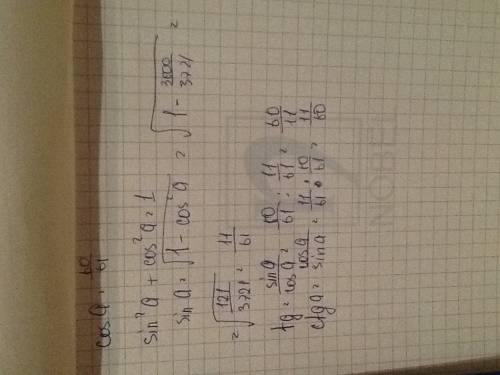 cos a = 60/61
sin²a + cos²a = 1
sin a = √(1 - cos²a) = √(1 - 3600/3721) =
= √(121/3721) = 11/61
tg = sin a/cos a = 60/61 : 11/61 = 60/11
ctg a = cos a/sin a = 11/61 : 60/61 = 11/60